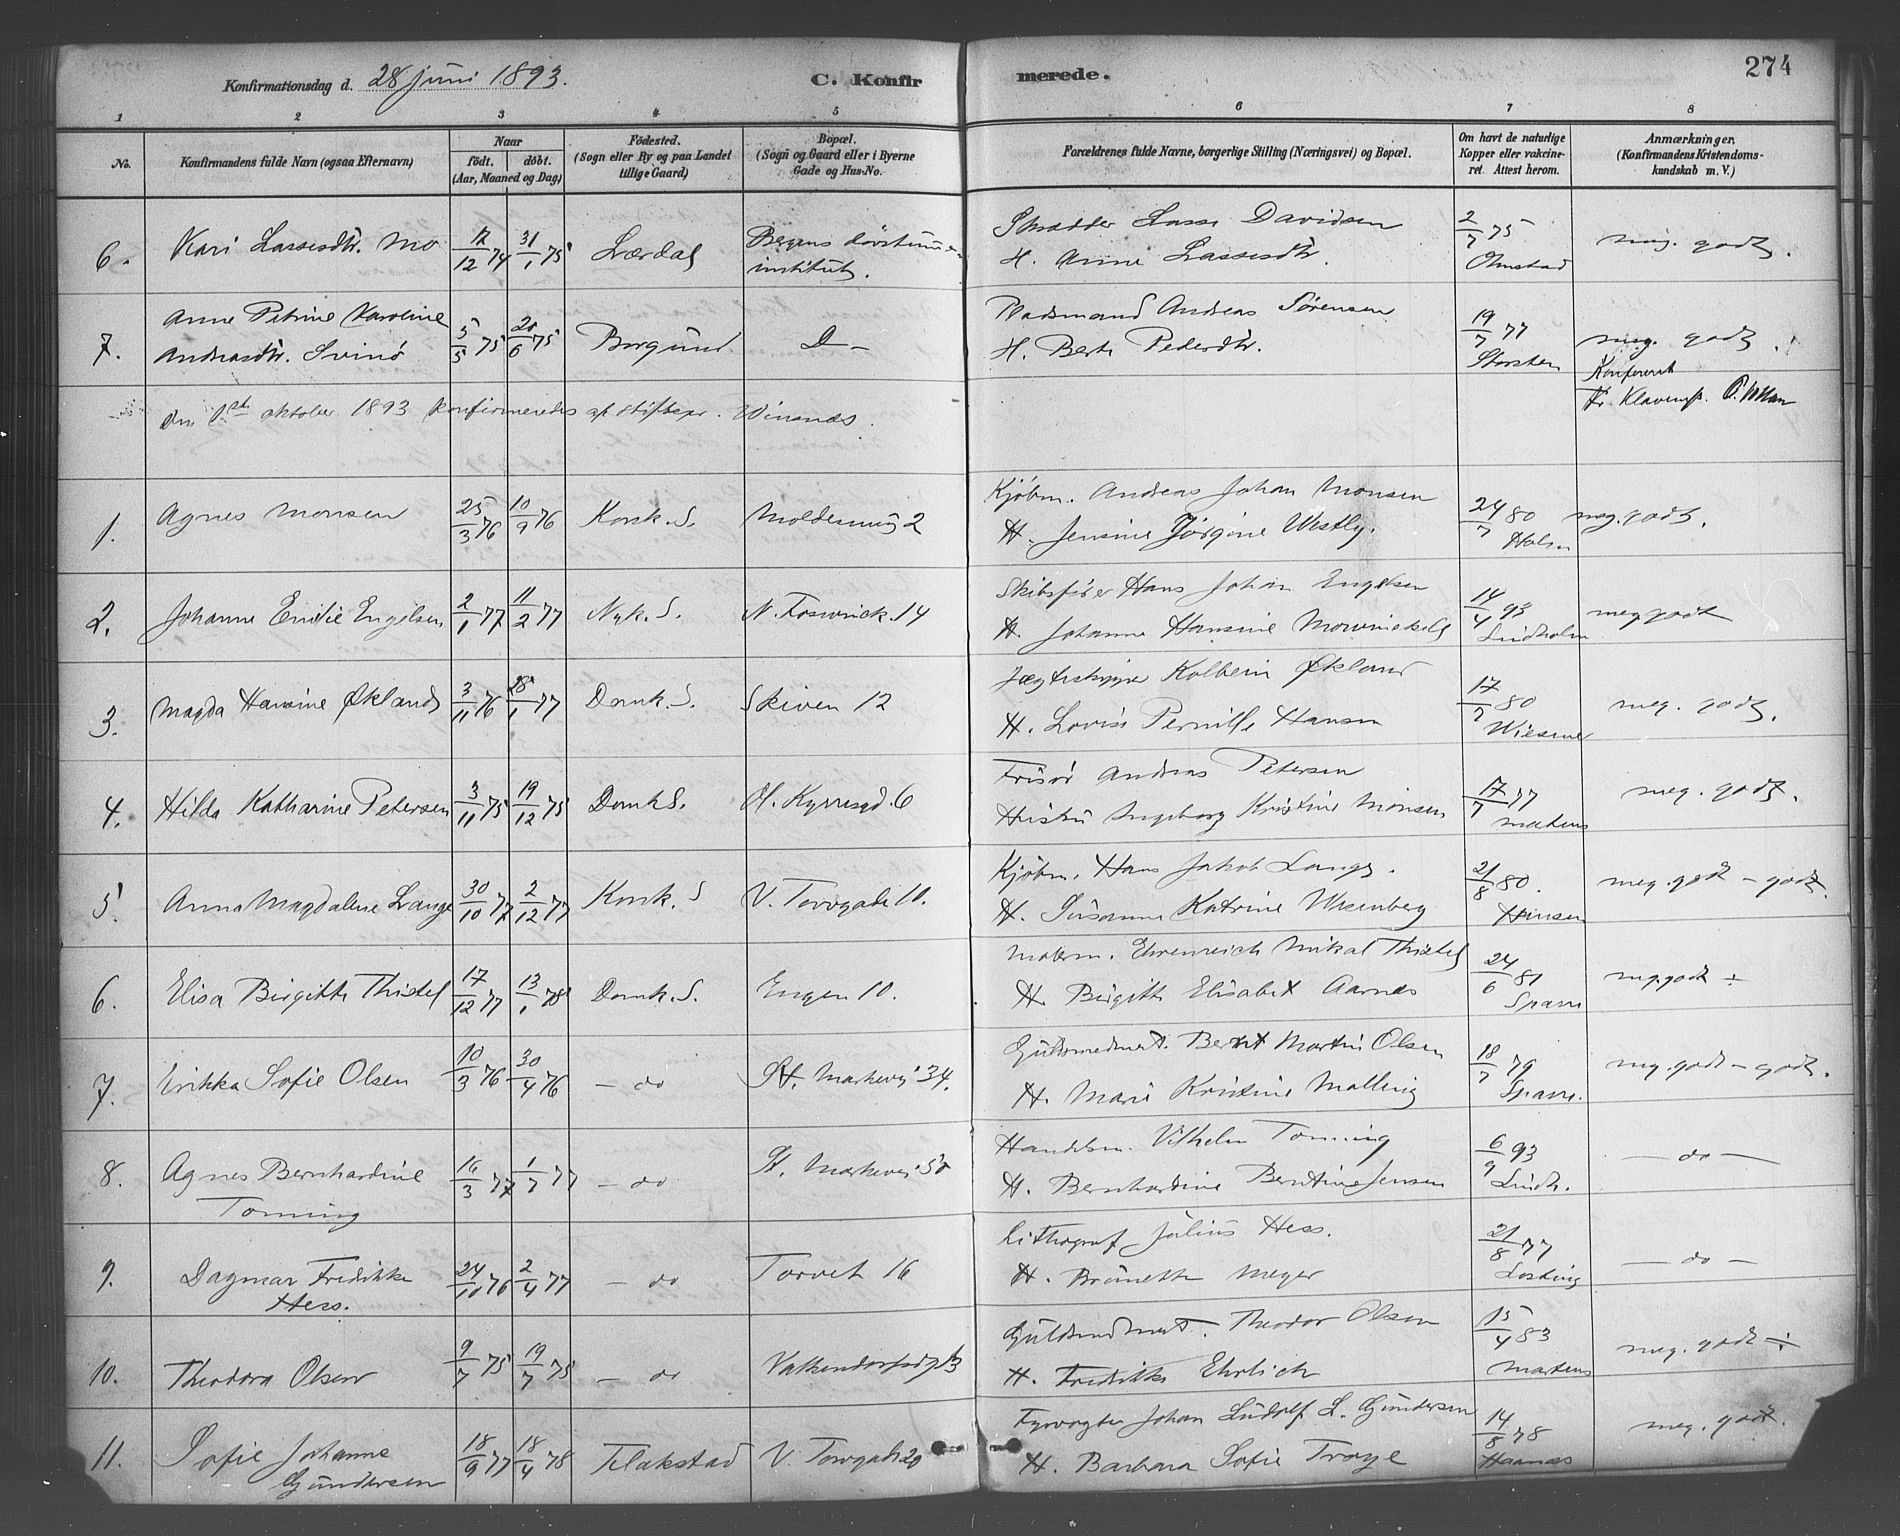 274
Konfirmationsdag d. 28 juni 1893.
C. Konfirmerede.
1 2 3 4 5 6 7 8
No.
Konfirmandens fulde Navn (ogsaa Efternavn)
Naar
født. døbt.
(Aar, Maaned og Dag)
Födested.
(Sogn eller By og paa Landet
tillige Gaard)
Bopæl.
(Sogn og Gaard eller i Byerne
Gade og Hus-No.
Forældrenes fulde Navne, borgerlige Stilling (Næringsvei) og Bopæl.
Om havt de naturlige
Kopper eller vakcine-
ret. Attest herom.
Anmærkninger.
(Konfirmandens Kristendoms-
kundskab m. V.)
6. Kari Lassesdtr. Mo 12/12 74 31/1 75 Lærdal Bergens døvstumme-
institut.
Skrædder Lasse Davidsen
H. Anne Lassesdtr. 2/7 75 Olmstad meg. godt.
7. Anne Petrine Karoline
Andreasdtr. Svinø 5/5 75 20/6 75 Borgund D—
Andreas Sørensen
H. Berte Pedersdtr. 19/7 77 meg. godt.
Konfereret
O. Wollan
Den 1st oktober 1893 konfirmeredes af stiftspr. Winsnes.
1. Agnes Monsen 25/3 76 10/9 76 Korsk. S. Moldesmug 2
Kjøbm. Andreas Johan Monsen
H. Jensine Jørgine Westly. 24/7 80 Holm meg. godt.
2. Johanne Emilie Engelsen 2/1 77 11/2 77 Nyk. S. N. Foswinck. 14
Skibsfører Hans Johan Engelsen
H. Johanne Hansine Mowinckel 14/4 93 Lindholm meg godt
3. Magda Hansine Økland 3/11 76 28/1 77 Domk. S. Skiven 12
Jægteskipper Kolbein Økland
H. Lovise Pernille Hansen 17/7 80 Wiesener meg. godt.
4. Hilda Katharine Petersen 3/11 75 19/12 75 Domk S. O. Kyrresgd. 6
Frisør Andreas Petersen
Hustru Ingeborg Kristine Monsen 17/7 77 Martens meg. godt.
5. Anna Magdalene Lange 30/10 77 2/12 77 Korsk. S V. Torvgade 10.
Kjøbm. Hans Jakob Lange.
H. Susanne Katrine Wesenberg 21/8 80. Hansen meg. godt - godt.
6. Elisa Birgitte Thistel 17/12 77 13/1 78 Domk. S. Engen 10.
Malerm. Ehrenreich Mikal Thistel
H. Birgitte Elisabet Aarnes 24/6 81 Sparre meg. godt ÷
7. Erikka Sofie Olsen 10/3 76 30/4 76 — do St. Markevei 34.
Guldsmedmest. Bernt Martin Olsen
H. Marie Kristine Malling 18/7 79 Sparre. meg. godt - godt.
8. Agnes Bernhardine
Tonning 16/3 77 1/7 77 — do St. Markevei 50
Handelsm. Vilhelm Tonning
H. Bernhardine Berntine Jensen 6/9 93 Lindh. — do —
9. Dagmar Fredrikke
Hess. 24/10 76 2/4 77 — do Torvet 16
Lithograf Julius Hess.
H. Brunette Meyer 21/8 77 Losting — do —
10. Theodora Olsen 9/7 75 19/7 75 — do Valkendorfsgt 3
Guldsmedmest. Theodor Olsen
H. Fredrikke Ehrlich 15/4 83 Martens meg. godt ÷
11. Sofie Johanne
Gundersen 18/9 77 18/4 78 Flakstad V. Torvgade 20
Fyrvogter Johan Ludolf L. Gundersen
H. Barbara Sofie Troye 14/8 78 Haanes meg. godt.